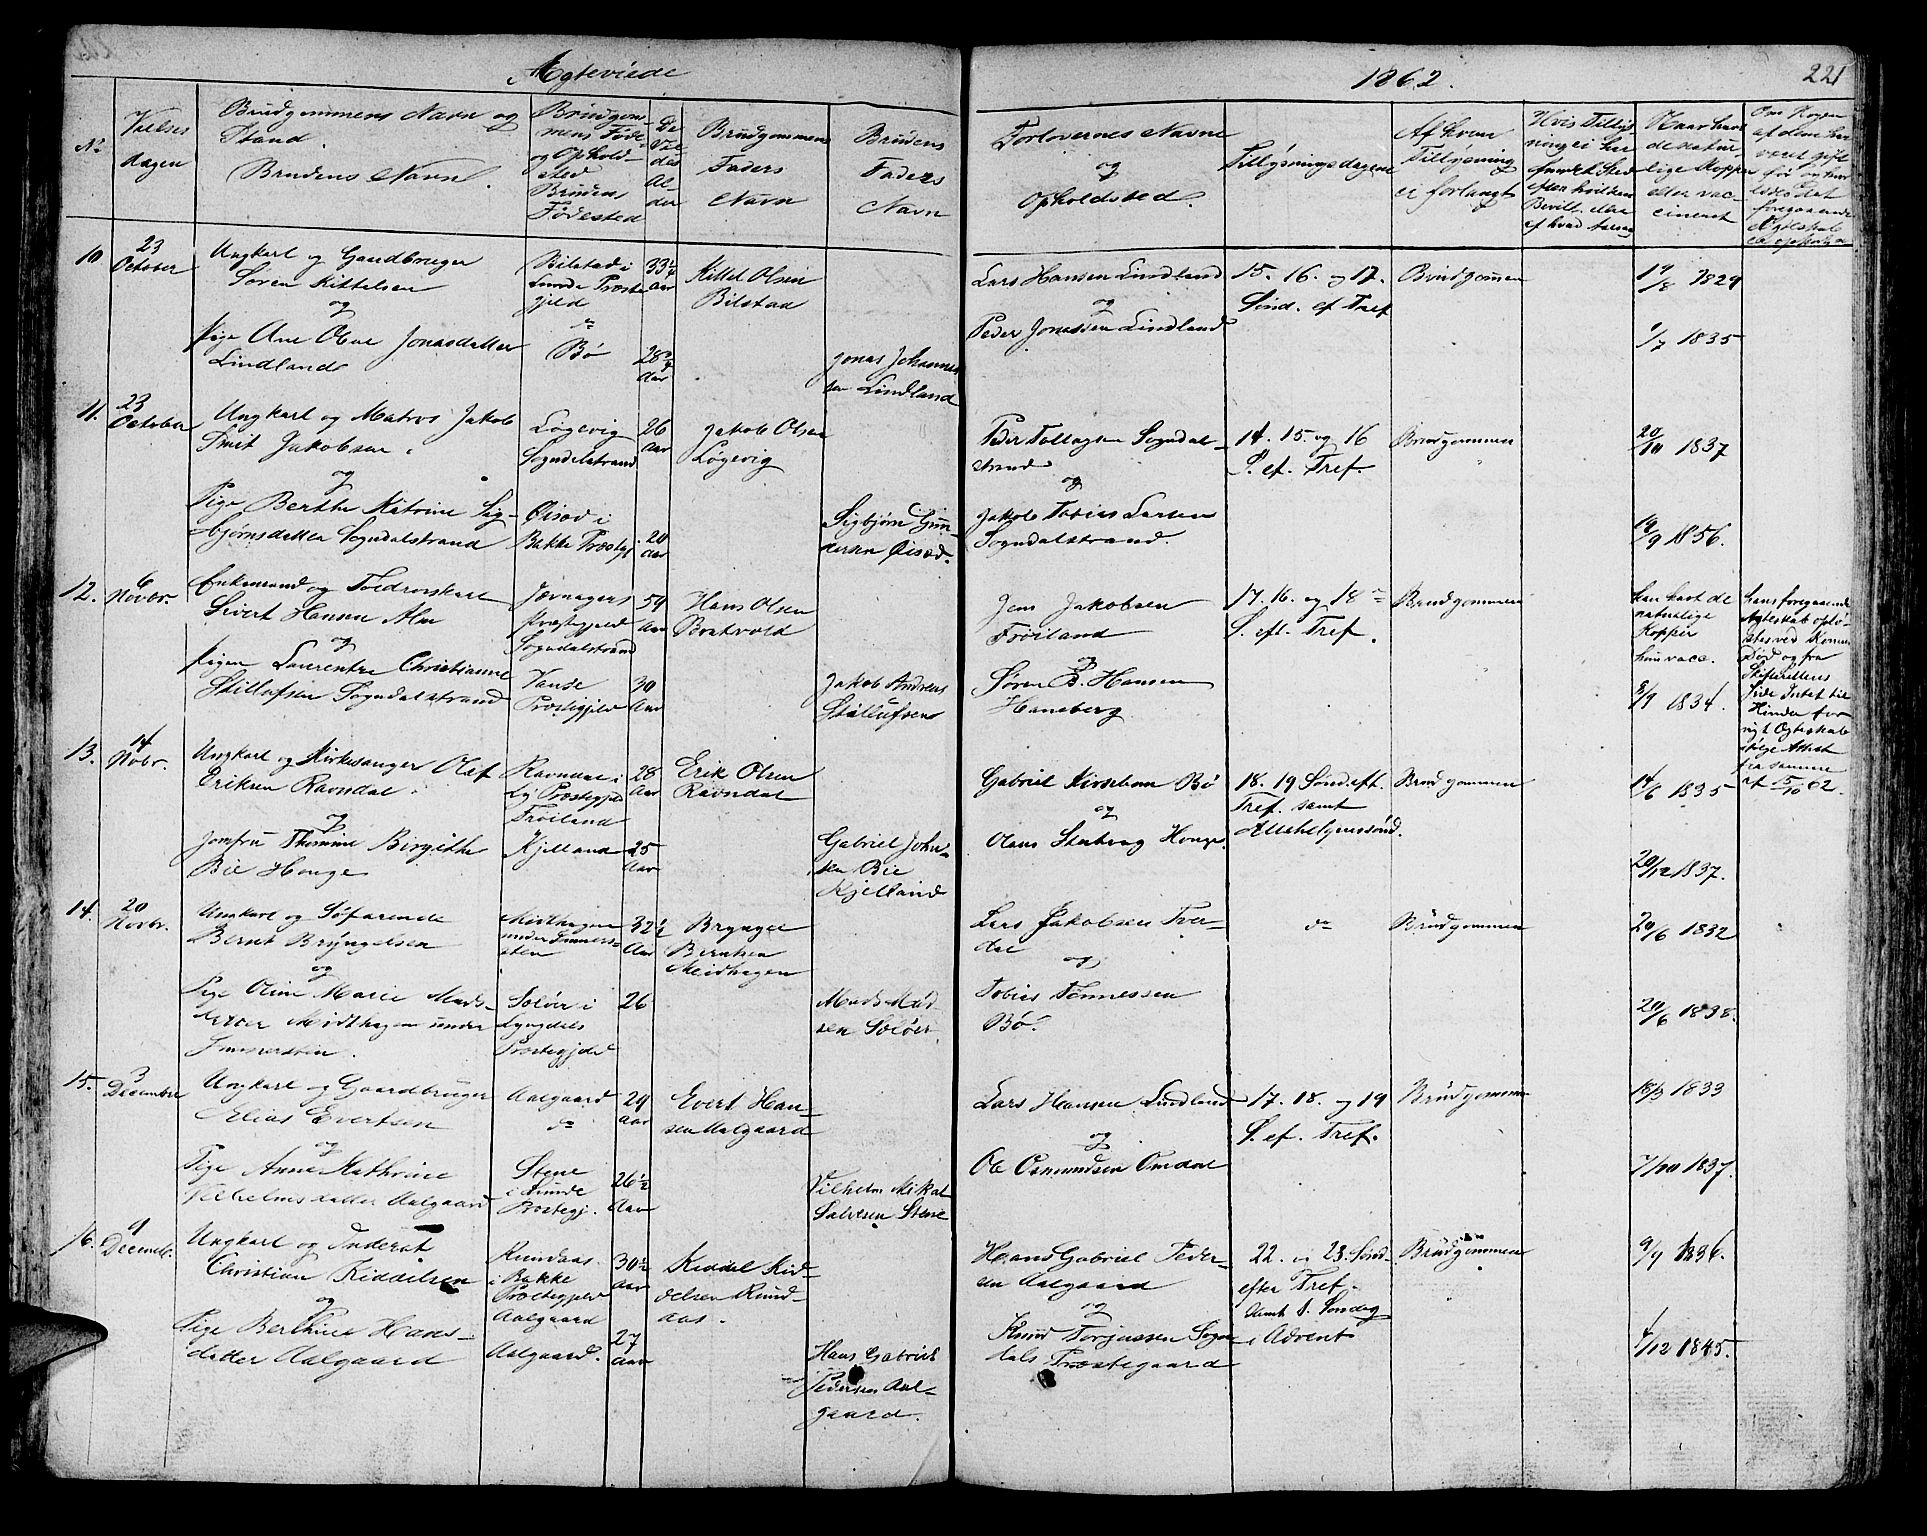 Ægteviede
1862.
221
No
Vielses
dagen
Brudgommens Navn og
Stand.
Brudens Navn.
Brudgom-
mens Føde-
og Ophold-
sted
Brudens
Fødested
De
Vie
des
Al-
der
Brudgommens
Faders
Navn
Brudens
Faders
Navn
Forlovernes Navne
og
Opholdsted.
Tillysningsdagene
Af hvem
Tillysning
ei forlangt
Hvis Tillys
ning ei har
fundet Sted
efter hvilken
Bevill. eller
af hvad Aarsag
Naar havt
de natur-
lige Kopper
eller vac-
cineret
Om Nogen
af dem har
været gift
før og hvor
ledes det
foregaaende
Ægteskab
er ophævet
10
23
October
Ungkarl og Gaardbruger
Søren Kittelsen
og
Pige Ane Olne Jonasdatter
Lindland
Bilstad i
Lunde Præste
gjeld
do
Bø
33¼
Aar
28¾
Aar
Kittel Olsen
Bilstad
Jonas Johannes
sen Lindland
Lars Hansen Lindland
og
Peder Jonassen Lindland
15. 16. og 17.
Sønd. ef Tref
Brudgommen
19/8 1829
1/7 1835
11.
23
October
Ungkarl og Matros Jakob
Smit Jakobsen.
og
Pige Berthe Katrine Sig-
bjørnsdatter Sogndalstrand
Løgevig
Sogndalstrand
Øisæd i
Bakke Præstgj.
26
Aar
20
Aar
Jakob Olsen
Løgevig
Sigbjørn Gun
dersen Øisæd.
Peder Tollagsen Sogndal-
strand
og
Jakob Tobias Larsen
Sogndalstrand.
14. 15. og 16
S. ef. Tref.
Brudgommen
20/10 1837
19/9 1856.
12.
6
Novbr.
Enkemand og Toldrorskarl
Sivert Hansen Alm
og
Pigen Laurentze Christianne
Stillufsen Sogndalstrand
Jævnagers
Præstegjeld
Sogndalstrand
Vanse
Præstegjeld
59
Aar
30
Aar
Hans Olsen
Bratvold
Jakob Andreas
Stillufsen
Jens Jakobsen
Frøiland
og
Søren B. Hansen
Haneberg
17. 16. og 18de
S. eft. Tref.
Brudgommen
han havt de
naturlige
Kopper
hun vacc.
8/9 1834.
hans foregaaende
Ægteskab oplø-
stes ved Konens
Død og fra
Skifterettens
Side Intet til
Hinder for
nyt Ægteskab
ifølge Attest
fra samme
af 15/10 62.
13.
14
Nobr.
Ungkarl og Kirkesanger Olaf
Eriksen Ravndal.
og
Jomfru Thomine Birgitthe
Bie Houge
Ravndal i
Ly Præstegjeld
Frøiland
Kjelland
28
Aar
25
Aar
Erik Olsen
Ravndal
Gabriel John-
sen Bie
Kjelland
Gabriel Kirsebom Bø
og
Olaus Stentvag Houge.
18. 19 Sønd. eft.
Tref. samt
Allehelgenssønd.
Brudgommen
14/6 1835
29/12 1837.
14.
20
Novbr.
Ungkarl og Søfarende
Bernt Bryngelsen
og
Pige Oline Marie Mads-
datter Midthagen under
Immerstein.
Midthagen
under Immers-
sten
Soløer i
Lyngdals
Præstegjeld
32½
Aar
26
Bryngel
Berntsen
Meidhagen
Mads Mad
sen Soløer
Lars Jakobsen Tve-
dal
og
Tobias Tønnessen
Bø.
do
Brudgommen
20/6 1832
20/6 1838.
15.
3
December
Ungkarl og Gaardbruger
Elias Evertsen
og
Pige Anne Kathrine
Vilhelmsdatter Aalgaard
Aalgaard
do
Stene
i Lunde
Præstegj.
29
Aar
26½
Aar
Evert Han-
sen Aalgaard
Vilhelm Mikal
Salvesen Stene
Lars Hansen Lindland
og
Ole Osmundsen Omdal
17. 18. og 19
S. ef. Tref.
Brudgommen
18/3 1833
7/10 1837.
16.
9
Decemb.
Ungkarl og Inderst
Christian Kiddelsen
og
Pige Berthine Hans-
datter Aalgaard
Rundaas
i Bakke
Præstegjeld
Aalgaard
Aalgaard.
30½
Aar
27
Aar
Kiddel Kid-
delsen Rund-
aas.
Hans Gabriel
Pedersen Aal-
gaard.
Hans Gabriel Peder-
sen Aalgaard
og
Knud Torjussen Sogn-
dals Præstegaard
22. og 23. Sønd-
efter Tref.
samt 1. Søndag
i Advent
Brudgommen
9/9 1836.
4/12 1845.